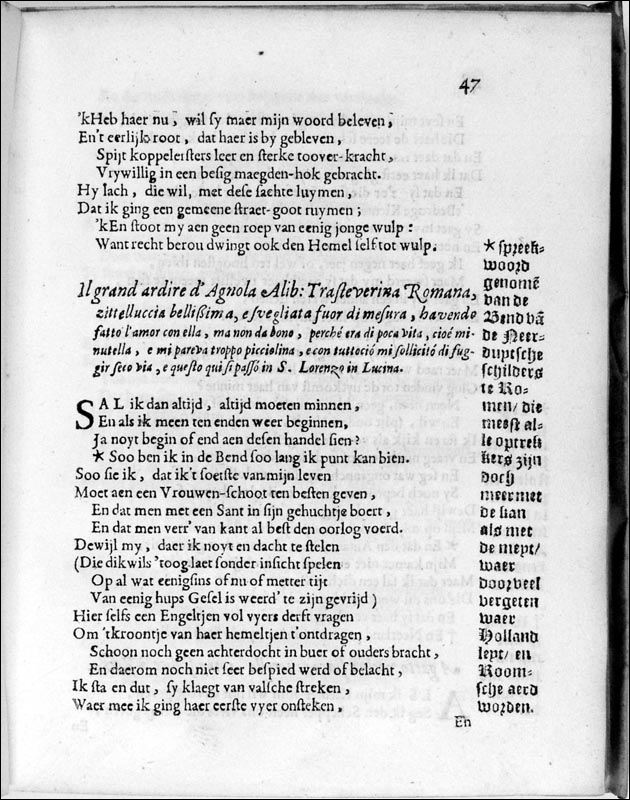 47
'kHeb haer nu, wil sy maer mijn woord beleven,
En't eerlijk root, dat haer is by gebleven,
Spijt koppelersters leer en sterke toover-kracht,
Vrywillig in een besig maegden-hok gebracht.
Hy lach, die wil, met dese sachte luymen,
Dat ik ging een gemeene straet-goot ruymen;
'kEn stoot my aen geen roep van eenig jonge wulp:
Want recht berou dwingt ook den Hemel self tot wulp.
Il grand' ardire d'Agnola Alib: Trasteverina Romana,
zittelluccia bellißima, e svegliata fuor di mesura, havendo
fatto l'amor con ella, ma non da bono, perché era di poca vita, cioé mi-
nutella, e mi pareva troppo picciolina, e con tuttoció mi sollicitó di fug-
gir seco via, e questo qui si passó in S. Lorenzo in Lucina.
SAL ik dan altijd, altijd moeten minnen,
En als ik meen ten enden weer beginnen,
Ja noyt begin of end aen desen handel sien?
* Soo ben ik in de Bend soo lang ik punt kan bien.
Soo sie ik, dat ik't soetste van mijn leven
Moet aen een Vrouwen-schoot ten besten geven,
En dat men met een Sant in sijn gehuchtje boert,
En dat men verr' van kant al best den oorlog voerd.
Dewijl my, daer ik noyt en dacht te stelen
(Die dikwils 'toog laet sonder insicht spelen
Op al wat eenigsins of nu of metter tijt
Van eenig hups Gesel is weerd' te zijn gevrijd)
Hier selfs een Engeltjen vol vyers derft vragen
Om 'tkroontje van haer hemeltjen t'ontdragen,
Schoon noch geen achterdocht in buer of ouders bracht,
En daerom noch niet seer bespied werd of belacht,
Ik sta en dut, sy klaegt van valsche streken,
Waer mee ik ging haer eerste vyer onsteken,
* spreek-
woord
genomē
van de
Bend vā
de Neer-
duytsche
schilders
te Ro-
men/ die
meest al-
le optrek
kers zijn
doch
meer met
de kan
als met
de meyt/
waer
door veel
vergeten
waer
Holland
leyt/ en
Room-
sche aerd
worden.
En